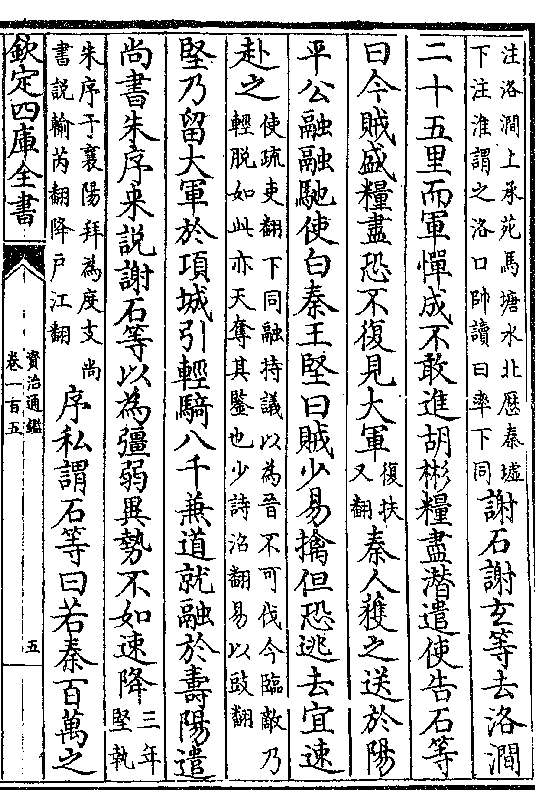 注洛澗上承苑馬塘水北歴秦墟
下注淮謂之洛口帥讀曰率下同
謝石謝玄等去洛澗
二十五里而軍憚成不敢進胡彬糧盡潛遣使告石等
曰今賊盛糧盡恐不復見大軍
復扶
又翻
秦人獲之送於陽
平公融融馳使白秦王堅曰賊少易擒但恐逃去宜速
赴之
使疏吏翻下同融持議以為晉不可伐今臨敵乃
輕脱如此亦天奪其鑒也少詩沼翻易以豉翻
堅乃留大軍於項城引輕騎八千兼道就融於壽陽遣
尚書朱序來説謝石等以為彊弱異勢不如速降
三年
堅執
朱序于襄陽拜為度支尚
書説輸芮翻降戸江翻
序私謂石等曰若秦百萬之
欽定四庫全書
資治通鑑
卷一百五
五